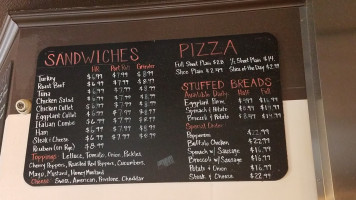 SANDWICHES
Turkey $6.99 $7.99 $8.99
Roast Beef $6.99 $7.99 $8.99
Tuna $6.99 $7.99 $8.99
Chicken Salad $6.99 $7.99 $8.99
Chicken Cutlet $6.99 $7.99 $8.99
Eggplant Cutlet $6.99 $7.99 $8.99
Italian Combo $6.99 $7.99 $8.99
Ham $6.99 $7.99 $8.99
Steak & Cheese $6.99 $7.99 $8.99
Reuben (on Rye) $8.99
Toppings Lettuce, Tomato, Onion, Pickles
Cherry Peppers, Roasted Red Peppers, Cucumbers,
Mayo, Mustard, Honey Mustard
Cheese Swiss, American, Provolone, Cheddar
PIZZA
Full Sheet Plain $28 ½ Sheet Plain $14
Slice Plain $2.49 Slice of the Day $2.99
STUFFED BREADS
Available Daily: Half Full
Eggplant Parm
Spinach & Potato
Broccoli & Potato
Special Order
Pepperoni $22.99
Buffalo Chicken $22.99
Spinach w/ Sausage $16.99
Broccoli w/ Sausage $16.99
Potato & Onion $16.99
Steak & Cheese $22.99